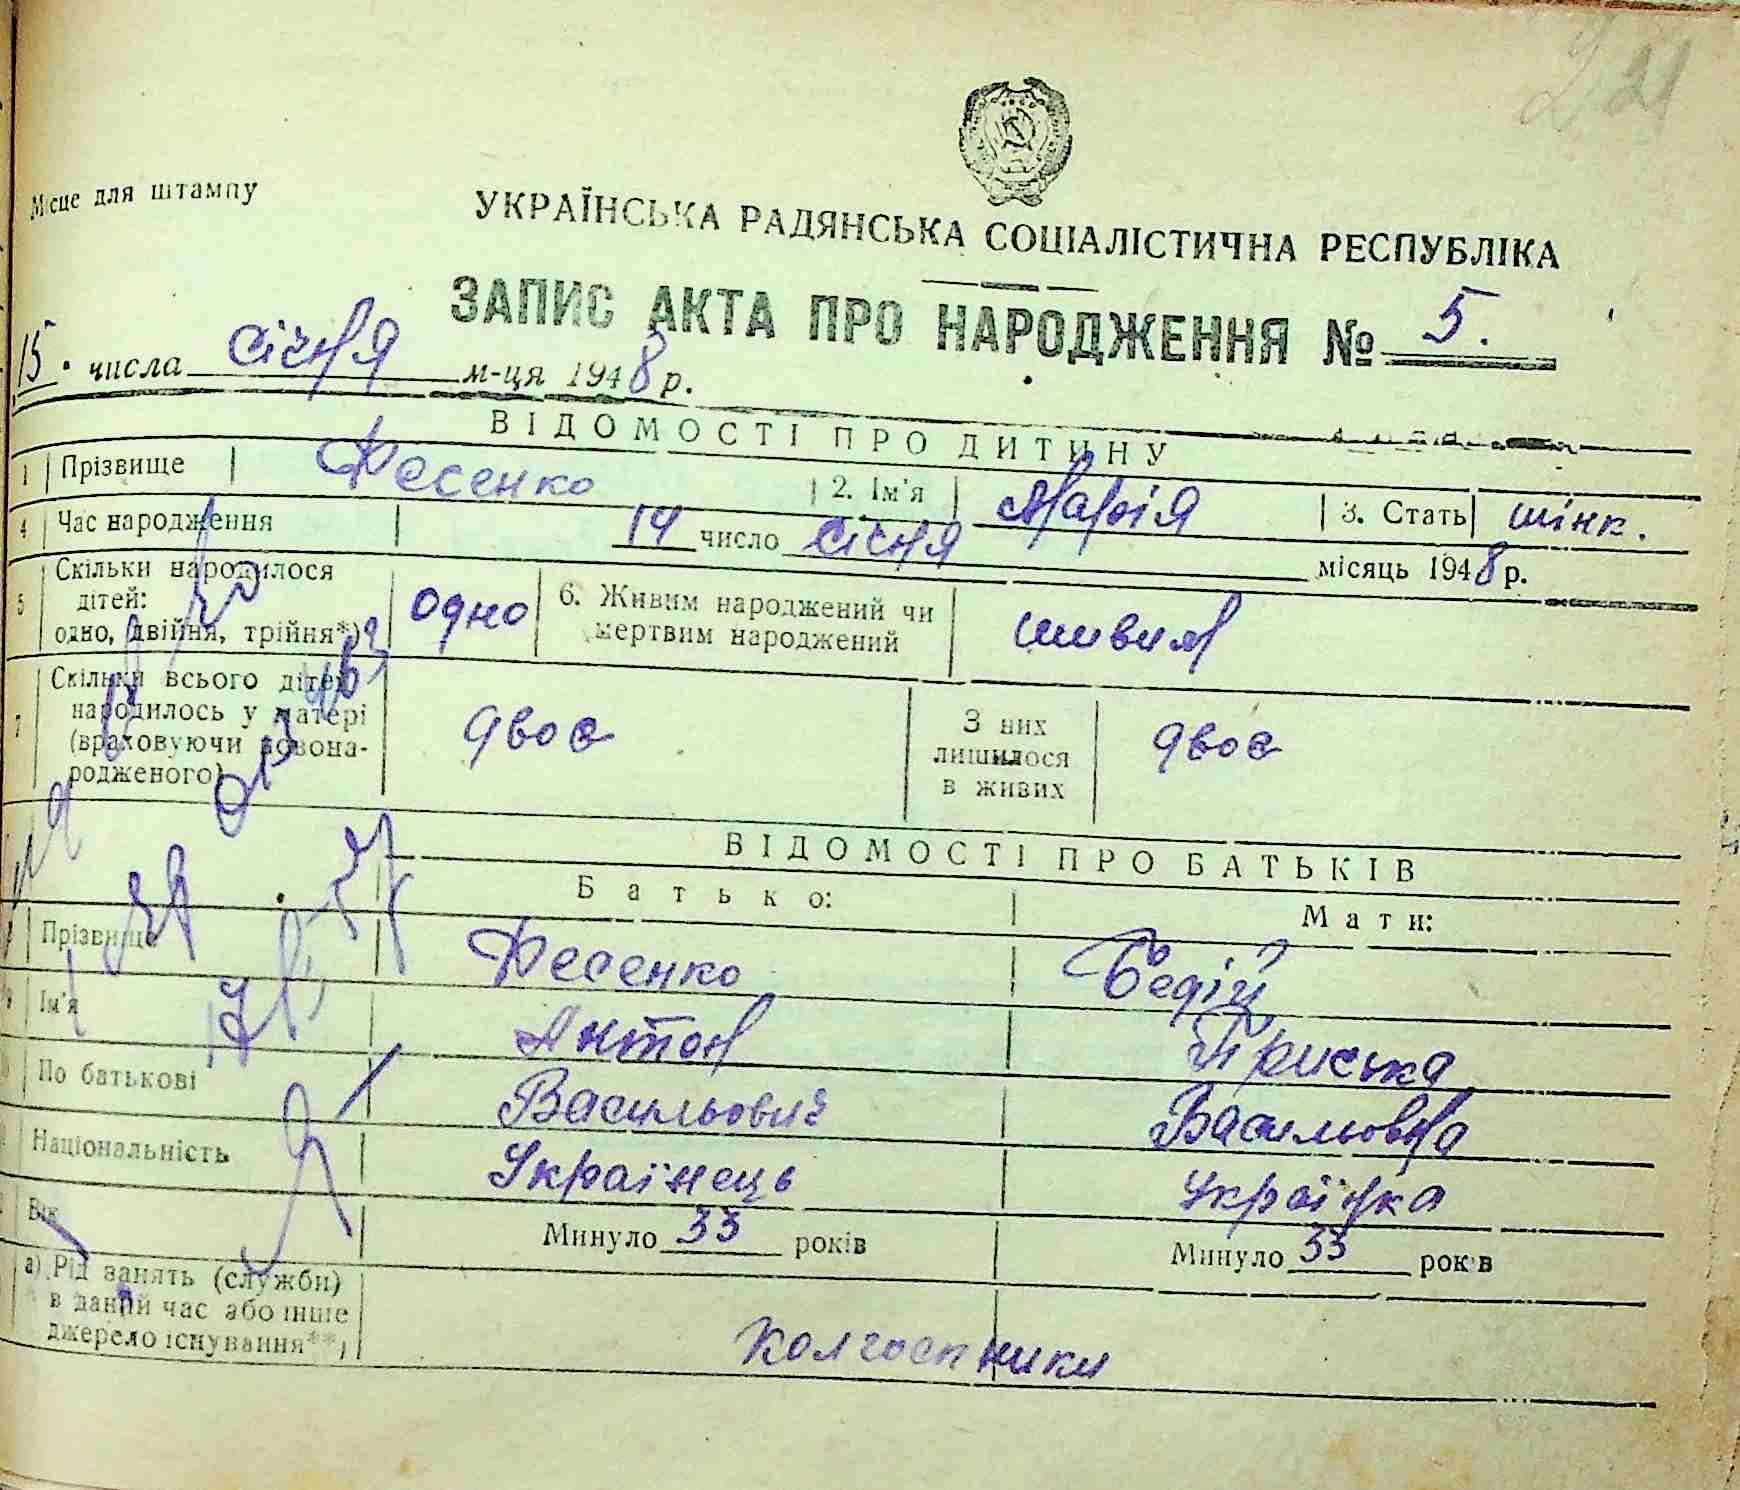 21
Місце для штампу
УКРАЇНСЬКА РАДЯНСЬКА СОЦІАЛІСТИЧНА РЕСПУБЛІКА
ЗАПИС АКТА ПРО НАРОДЖЕННЯ № 5.
15 числа січня м-ця 1948 р.
ВІДОМОСТІ ПРО ДИТИНУ
1 Прізвище Фесенко 2. Ім'я Марія 3. Стать жінк.
4 Час народження 14 число січня місяць 1948 р.
5 Скільки народилося дітей: одно, двійня, трійня*) одно 6. Живим народжений чи мертвим народжений живим
7 Скільки всього дітей народилось у матері (враховуючи новонародженого) двоє З них лишилося в живих двоє
ВІДОМОСТІ ПРО БАТЬКІВ
Батько: Мати:
Прізвище Фесенко Бедій
9 Ім'я Антон Приська
По батькові Васильович Васильовна
Національність Українець Українка
Вік Минуло 33 років Минуло 33 років
а) Рід занять (служби) в даний час або інше джерело існування**) Колгоспники